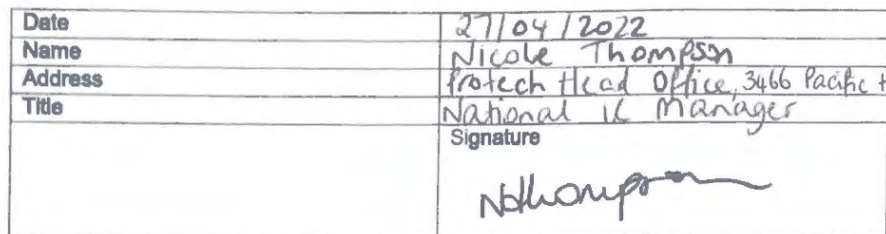 Date 27/04/2022
Name Nicole Thompson
Address Protech Head Office, 3466 Pacific
Title National Manager
Signature
NThompson